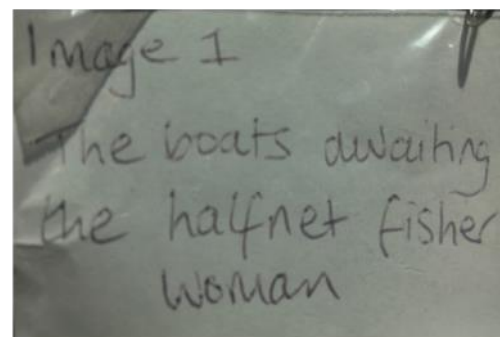 Image 1
The boats awaiting
the halfnet fisher
woman